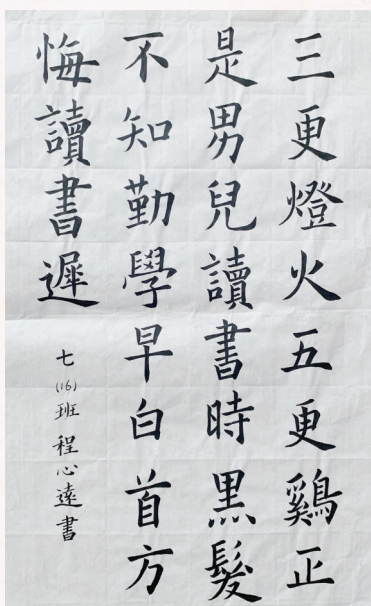 三更燈火五更鷄正
是男兒讀書時黑髮
不知勤學早白首方
悔讀書遲
七(16)班程心遠書